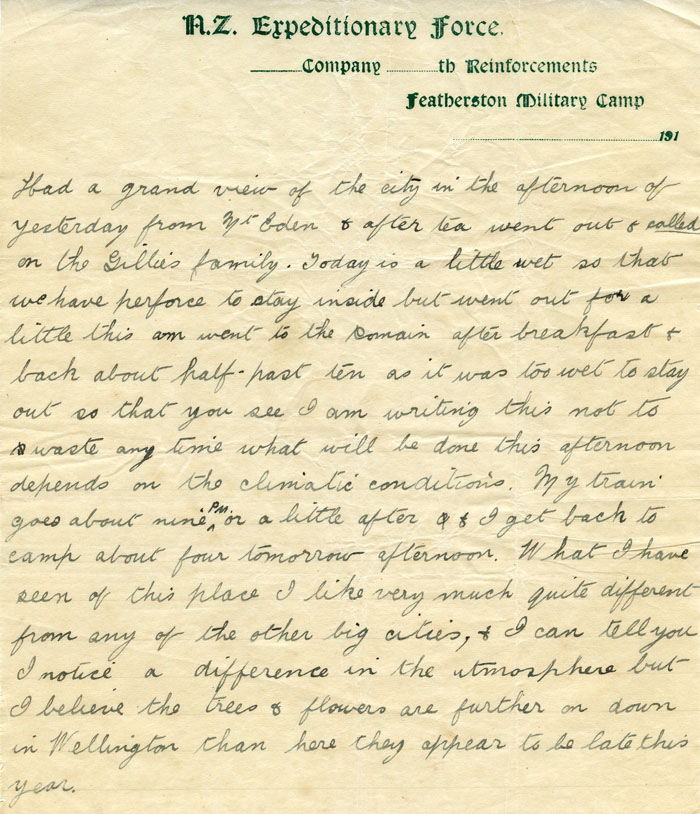 N.Z. Expeditionary Force.
Company th Reinforcements
Featherston Military Camp
191
Had a grand view of the city in the afternoon of
yesterday from Mt Eden & after tea went out & called
on the Gillies family. Today is a little wet so that
we have perforce to stay inside but went out for a
little this am went to the Domain after breakfast &
back about half-past ten as it was too wet to stay
out so that you see I am writing this not to
waste any time what will be done this afternoon
depends on the climatic conditions. My train
goes about nine PM or a little after & I get back to
camp about four tomorrow afternoon. What I have
seen of this place I like very much quite different
from any of the other big cities, & I can tell you
I notice a difference in the atmosphere but
I believe the trees & flowers are further on down
in Wellington than here they appear to be late this
year.